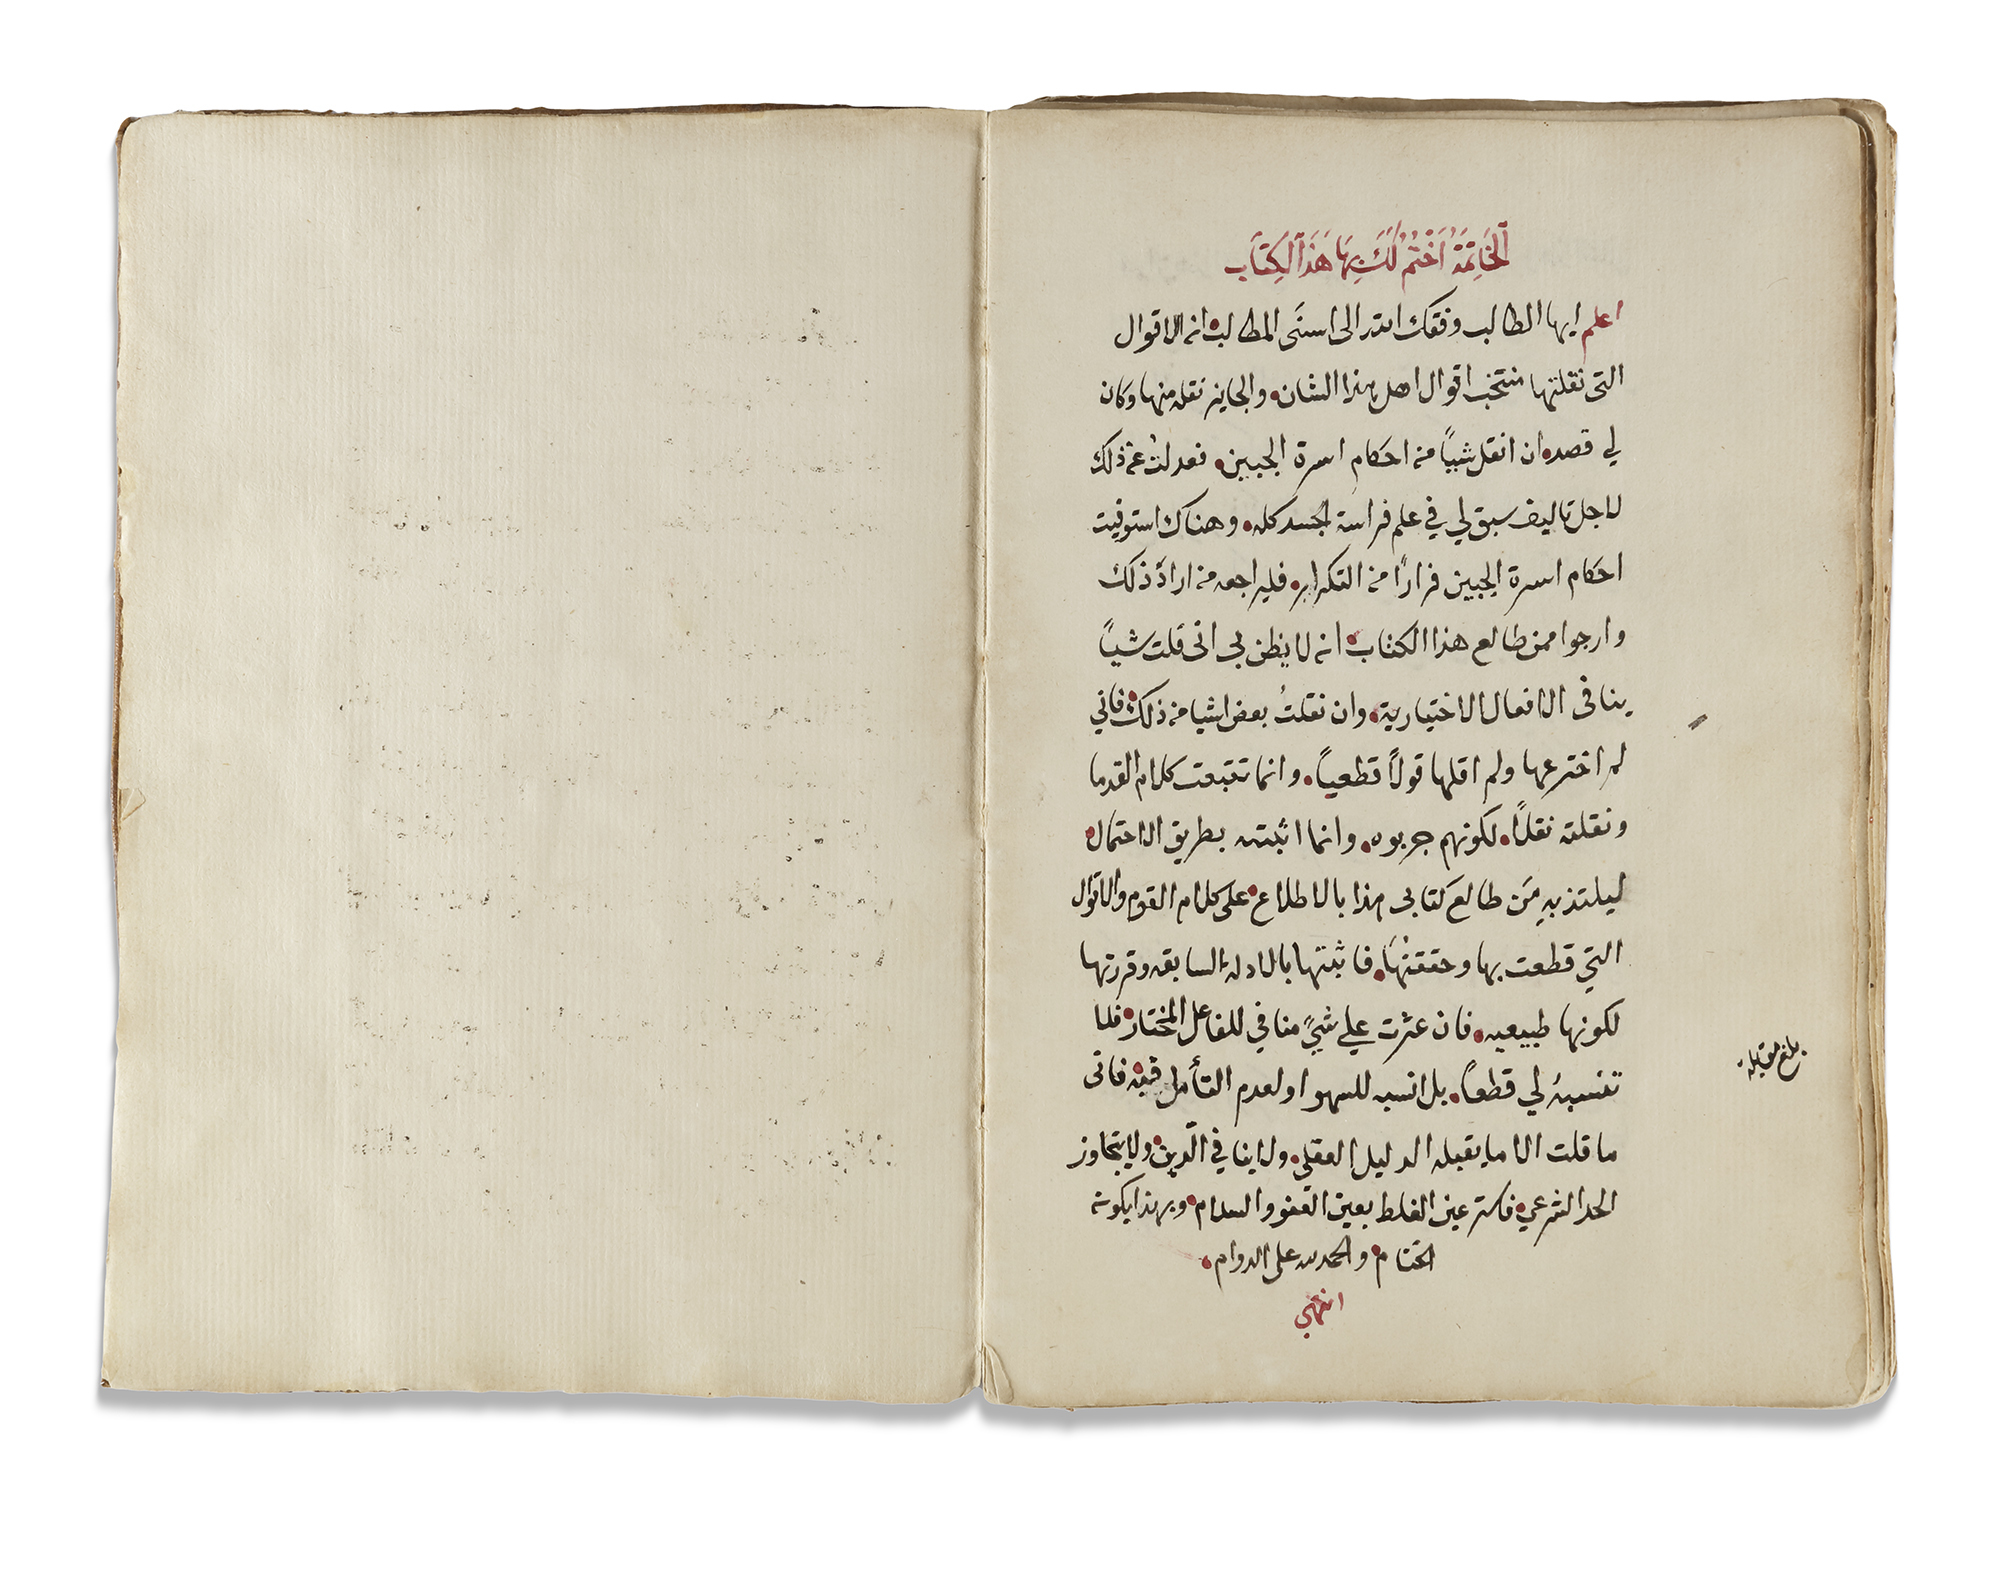 اَلْخَاتِمَةُ اَخْتُمُ لَكَ بِهَا هَذَا الْكِتَابَ
اعلم ايها الطالب وفقك الله الى اسنَى المطالب ان الاقوال
التى نقلتها منتخب اقوال اهل هذا الشان والجايز نقله منها وكان
لي قصد ان انقل شيياً من احكام اسرة الجبين فعدلتُ عن ذلك
لاجل تاليف سبق لي في علم فراسة الجسد كله وهناك استوفيت
احكام اسرة الجبين فراراً من التكرار فليراجعه من ارادَ ذلك
وارجوا ممن طالع هذا الكتاب ان لا يظن بى انى قلت شيياً
ينافى الافعال الاختيارية وان نقلتُ بعض اشيا من ذلك فاني
لم اخترعها ولم اقلها قولاً قطعياً وانما تتبعت كلام القدما
ونقلته نقلاً لكونهم جربوه وانما اثبته بطريق الاحتمال
ليلتذ بهِ مَن طالعَ كتابى هذا بالاطلاع على كلام القوم والاقوال
التي قطعت بها وحققتُهَا فاثبتها بالادلة السابقه وقررتها
لكونها طبيعيه فان عثرت علي شيً منافي للفاعل المختار فلا
تنسبهُ لي قطعاً بل انسبه للسهو او لعدم التأمل فيه فانى
ما قلت الا ما يقبله الدليل العقلي ولا ينافي الدّين ولا يتجاوز
الحد الشرعي فاستر عين الغلط بعين العفو والسلام وبهذا يكون
الختام والحمد لله على الدوام
انتهي
بلغ مقابله